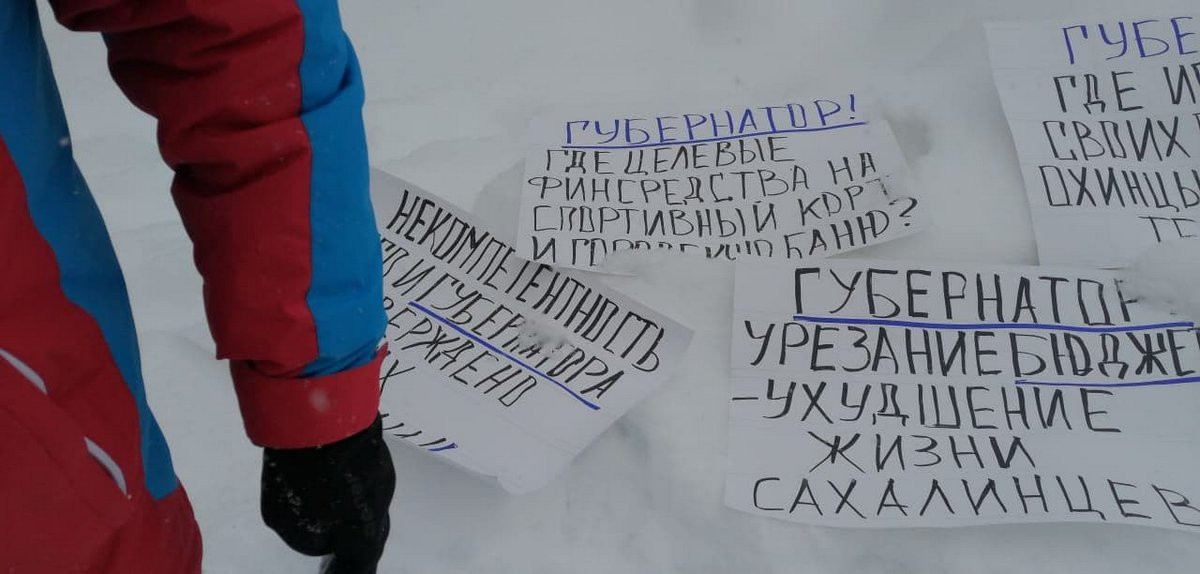 ГУБЕРНАТОР!
ГДЕ ЦЕЛЕВЫЕ
ФИНСРЕДСТВА НА
СПОРТИВНЫЙ КОРТ
И ГОРОДСКУЮ БАНЮ?
НЕКОМПЕТЕНТНОСТЬ
И ГУБЕРНАТОРА
ГУБЕ
ГДЕ
СВОИХ
ОХИНЦЫ
ГУБЕРНАТОР
УРЕЗАНИЕ БЮДЖЕ
-УХУДШЕНИЕ
ЖИЗНИ
САХАЛИНЦЕВ